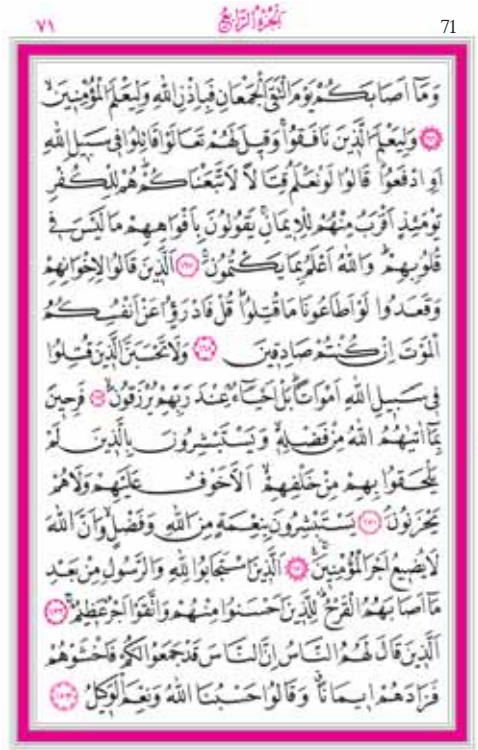 ٧١ اَلْجُزْءُ الرَّابِعُ 71
وَمَٓا اَصَابَكُمْ يَوْمَ الْتَقَى الْجَمْعَانِ فَبِاِذْنِ اللّٰهِ وَلِيَعْلَمَ الْمُؤْمِنٖينَۙ
﴿١٦٦﴾ وَلِيَعْلَمَ الَّذٖينَ نَافَقُواۚ وَقٖيلَ لَهُمْ تَعَالَوْا قَاتِلُوا فٖي سَبٖيلِ اللّٰهِ
اَوِ ادْفَعُواۜ قَالُوا لَوْ نَعْلَمُ قِتَالًا لَاتَّبَعْنَاكُمْۜ هُمْ لِلْكُفْرِ
يَوْمَئِذٍ اَقْرَبُ مِنْهُمْ لِلْاٖيمَانِۚ يَقُولُونَ بِاَفْوَاهِهِمْ مَا لَيْسَ فٖي
قُلُوبِهِمْۜ وَاللّٰهُ اَعْلَمُ بِمَا يَكْتُمُونَۚ ﴿١٦٧﴾ اَلَّذٖينَ قَالُوا لِاِخْوَانِهِمْ
وَقَعَدُوا لَوْ اَطَاعُونَا مَا قُتِلُواۜ قُلْ فَادْرَؤُ۫ا عَنْ اَنْفُسِكُمُ
الْمَوْتَ اِنْ كُنْتُمْ صَادِقٖينَ ﴿١٦٨﴾ وَلَا تَحْسَبَنَّ الَّذٖينَ قُتِلُوا
فٖي سَبٖيلِ اللّٰهِ اَمْوَاتًاۜ بَلْ اَحْيَٓاءٌ عِنْدَ رَبِّهِمْ يُرْزَقُونَۙ ﴿١٦٩﴾ فَرِحٖينَ
بِمَٓا اٰتٰيهُمُ اللّٰهُ مِنْ فَضْلِهٖۙ وَيَسْتَبْشِرُونَ بِالَّذٖينَ لَمْ
يَلْحَقُوا بِهِمْ مِنْ خَلْفِهِمْۙ اَلَّا خَوْفٌ عَلَيْهِمْ وَلَا هُمْ
يَحْزَنُونَۢ ﴿١٧٠﴾ يَسْتَبْشِرُونَ بِنِعْمَةٍ مِنَ اللّٰهِ وَفَضْلٍۙ وَاَنَّ اللّٰهَ
لَا يُضٖيعُ اَجْرَ الْمُؤْمِنٖينَۚۛ ﴿١٧١﴾ اَلَّذٖينَ اسْتَجَابُوا لِلّٰهِ وَالرَّسُولِ مِنْ بَعْدِ
مَٓا اَصَابَهُمُ الْقَرْحُۜۛ لِلَّذٖينَ اَحْسَنُوا مِنْهُمْ وَاتَّقَوْا اَجْرٌ عَظٖيمٌۚ ﴿١٧٢﴾
اَلَّذٖينَ قَالَ لَهُمُ النَّاسُ اِنَّ النَّاسَ قَدْ جَمَعُوا لَكُمْ فَاخْشَوْهُمْ
فَزَادَهُمْ اٖيمَانًاۗ وَقَالُوا حَسْبُنَا اللّٰهُ وَنِعْمَ الْوَكٖيلُ ﴿١٧٣﴾